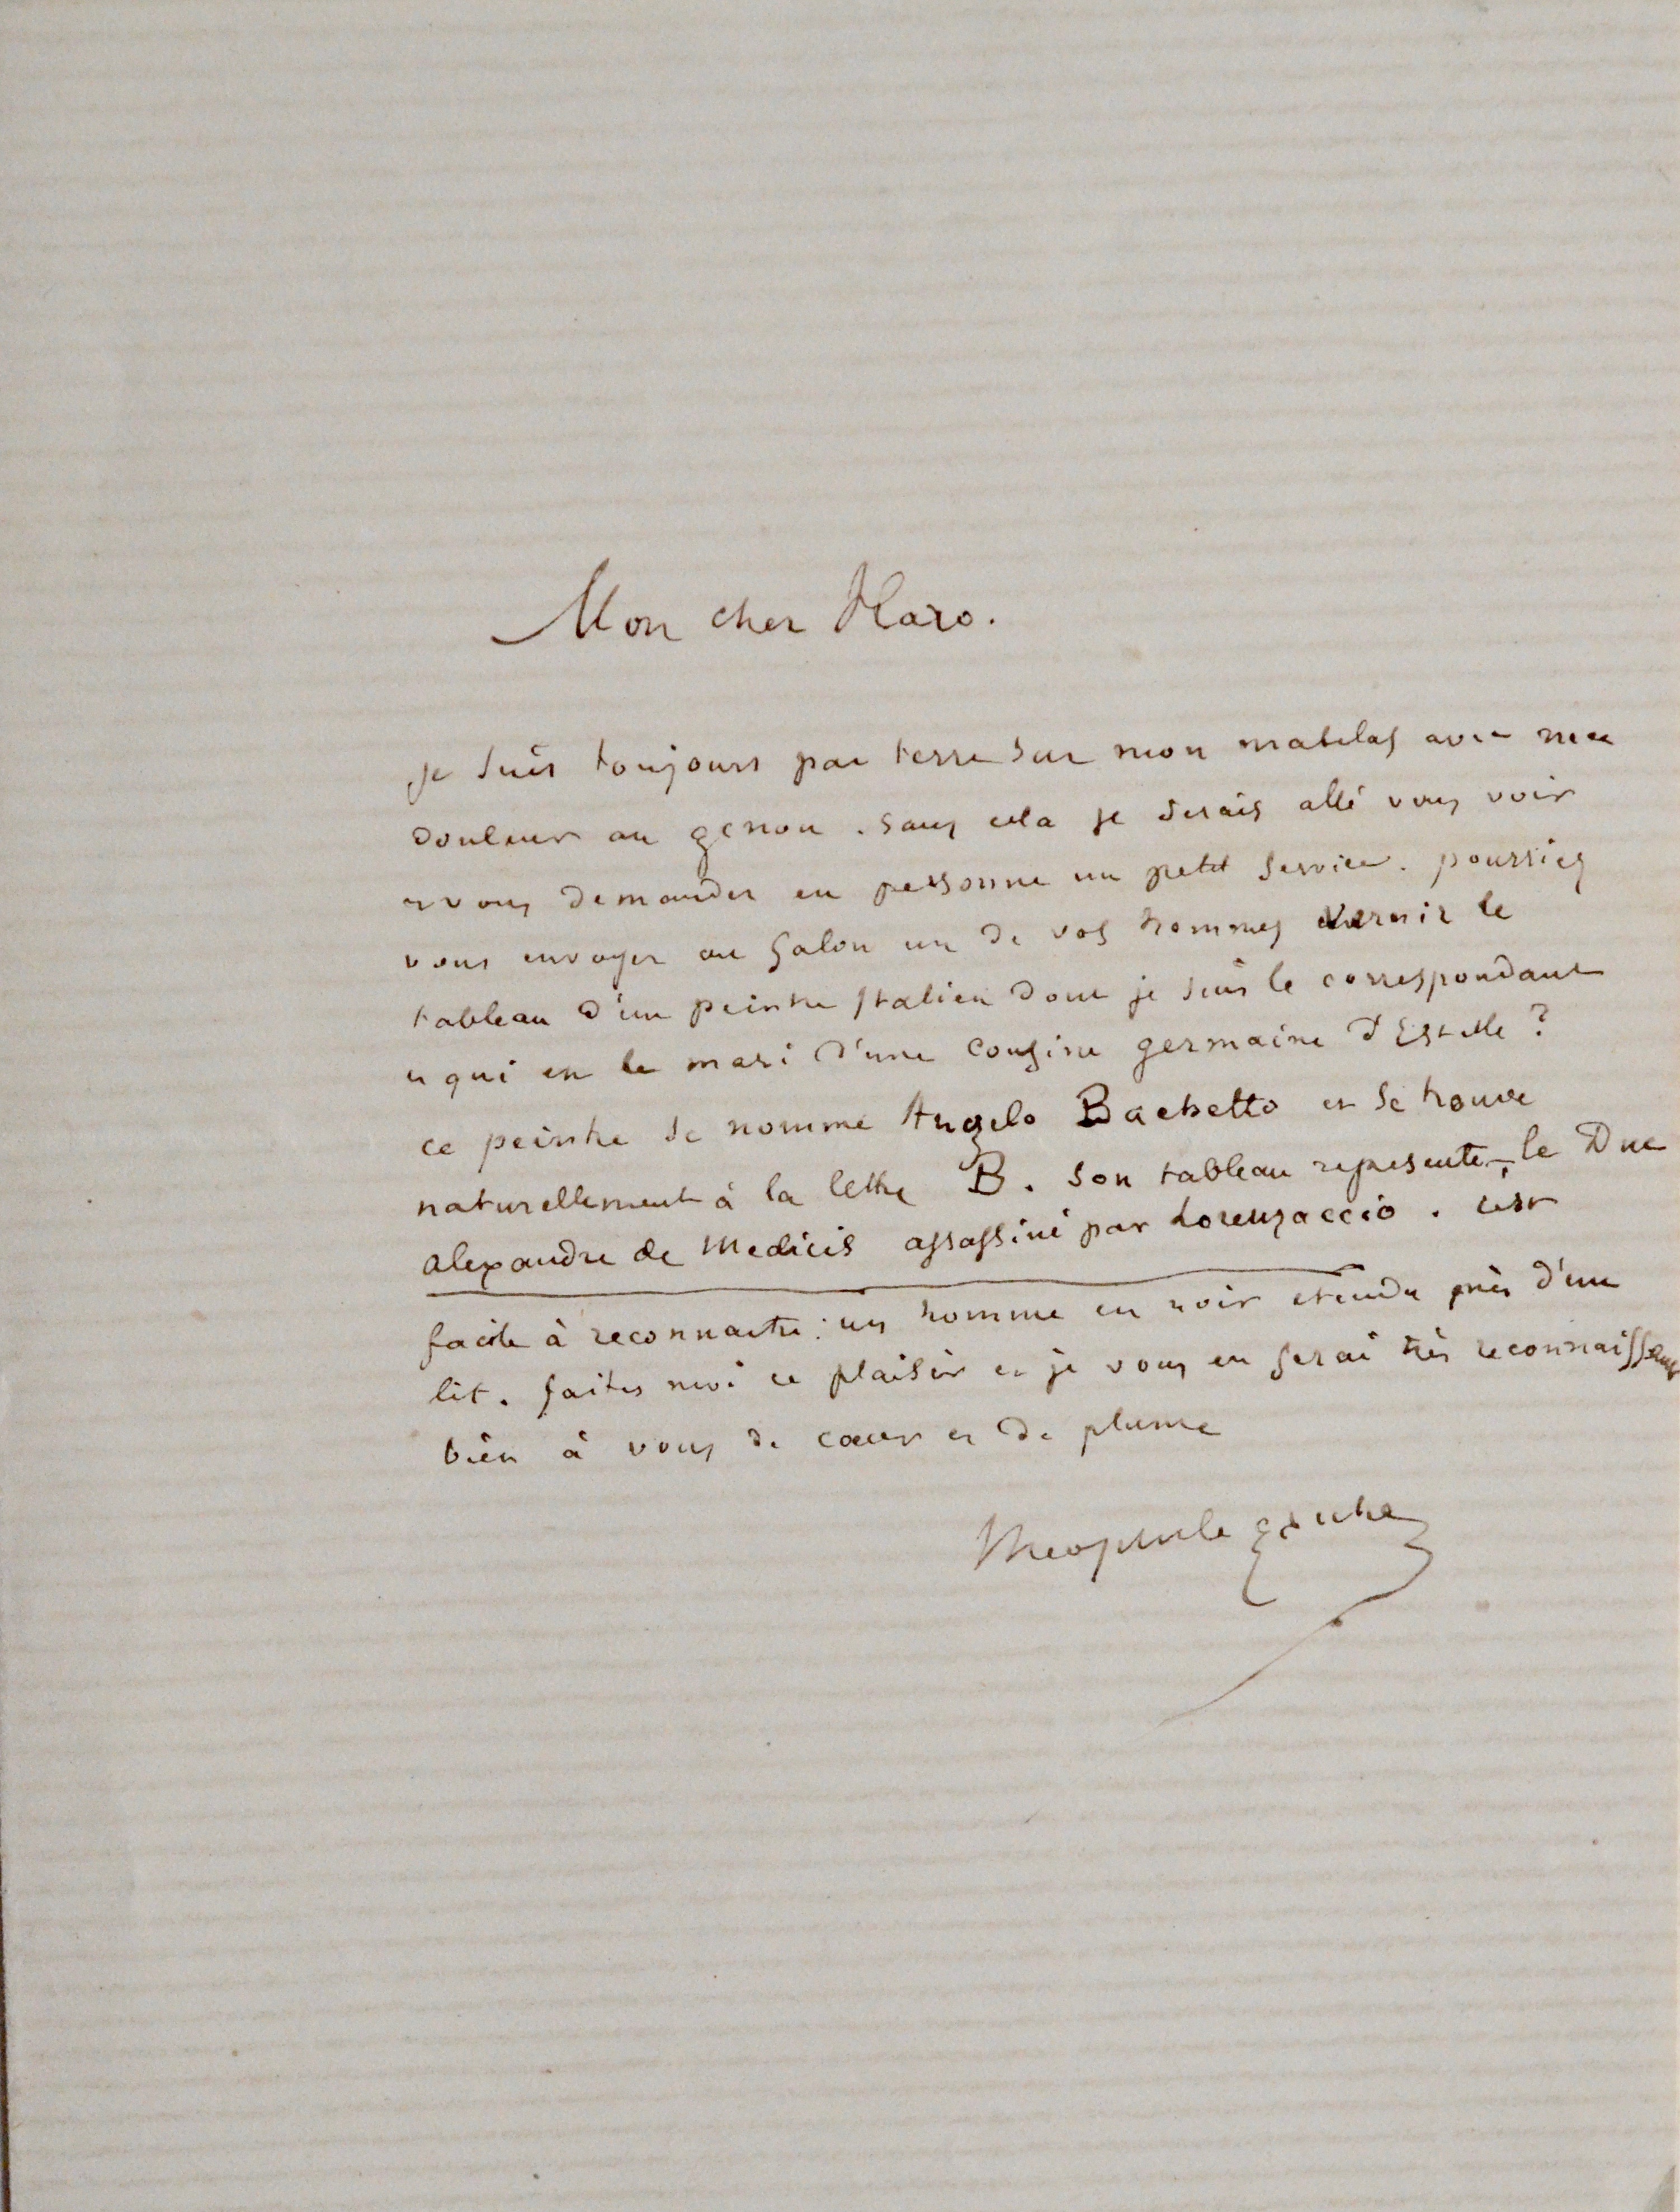 Mon cher Haro.
je suis toujours par terre sur mon matelas avec ma
douleur au genou. sans cela je serais allé vous voir
et vous demander en personne un petit service. pourriez
vous envoyer au Salon un de vos hommes vernir le
tableau d'un peintre Italien dont je suis le correspondant
et qui est le mari d'une cousine germaine d'Estelle ?
ce peintre se nomme Angelo Bachetto et se trouve
naturellement à la lettre B. son tableau represente, le Duc
alexandre de Medicis assassiné par Lorenzaccio. c'est
facile à reconnaitre: un homme en noir etendu près d'un
lit. faites moi ce plaisir et je vous en serai très reconnaissant
bien à vous de cœur et de plume
Theophile Gautier